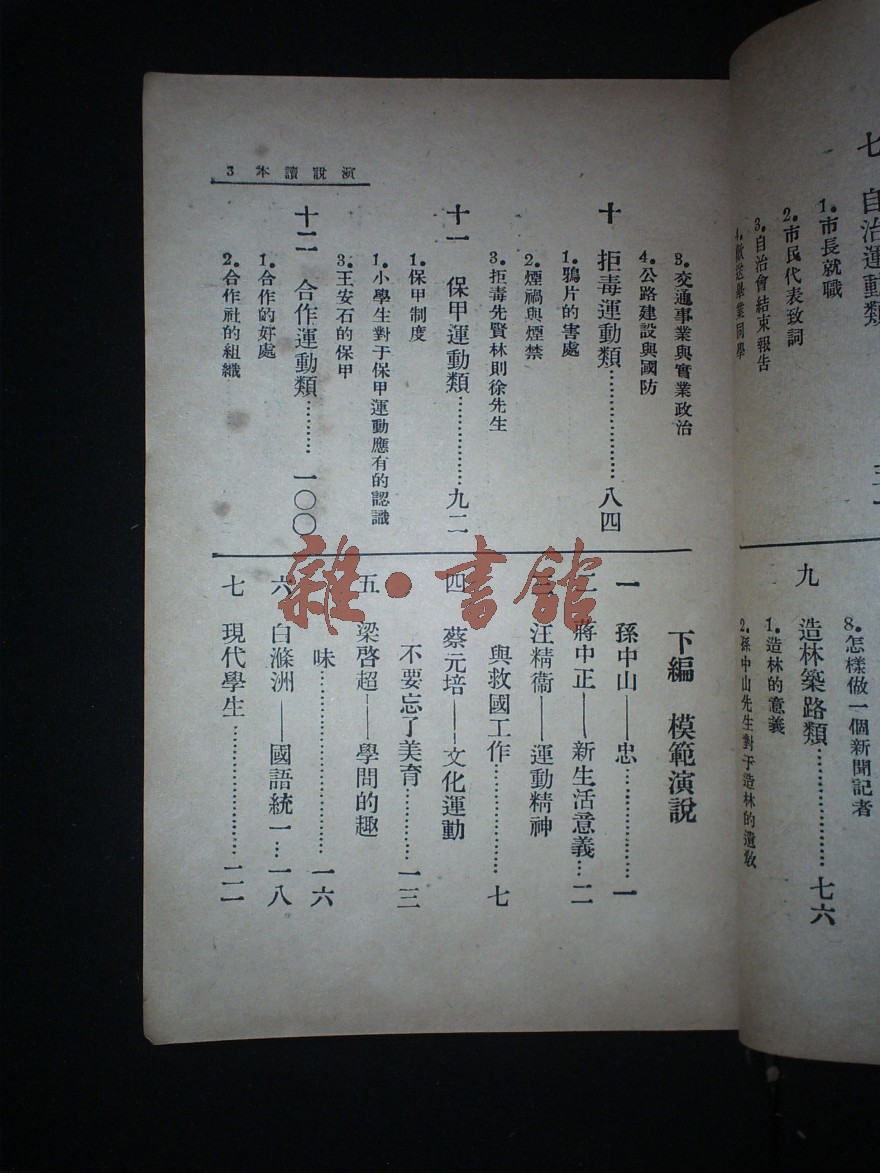 七 自治運動類
1.市長就職
2.市民代表致詞
3.自治會結束報告
4.歡送畢業同學
8.怎樣做一個新聞記者
九 造林築路類……………七六
1.造林的意義
2.孫中山先生對于造林的遺敎
演說讀本 3
3.交通事業與實業政治
4.公路建設與國防
十 拒毒運動類……………八四
1.鴉片的害處
2.煙禍與煙禁
3.拒毒先賢林則徐先生
十一 保甲運動類…………九二
1.保甲制度
1.小學生對于保甲運動應有的認識
3.王安石的保甲
十二 合作運動類………一〇〇
1.合作的好處
2.合作社的組織
下編 模範演說
一 孫中山——忠……………一
二 蔣中正——新生活意義…二
三 汪精衞——運動精神
與救國工作…………七
四 蔡元培——文化運動
不要忘了美育………一三
五 梁啓超——學問的趣
味……………………一六
六 白滌洲——國語統一…一八
七 現代學生………………二一
雜·書館